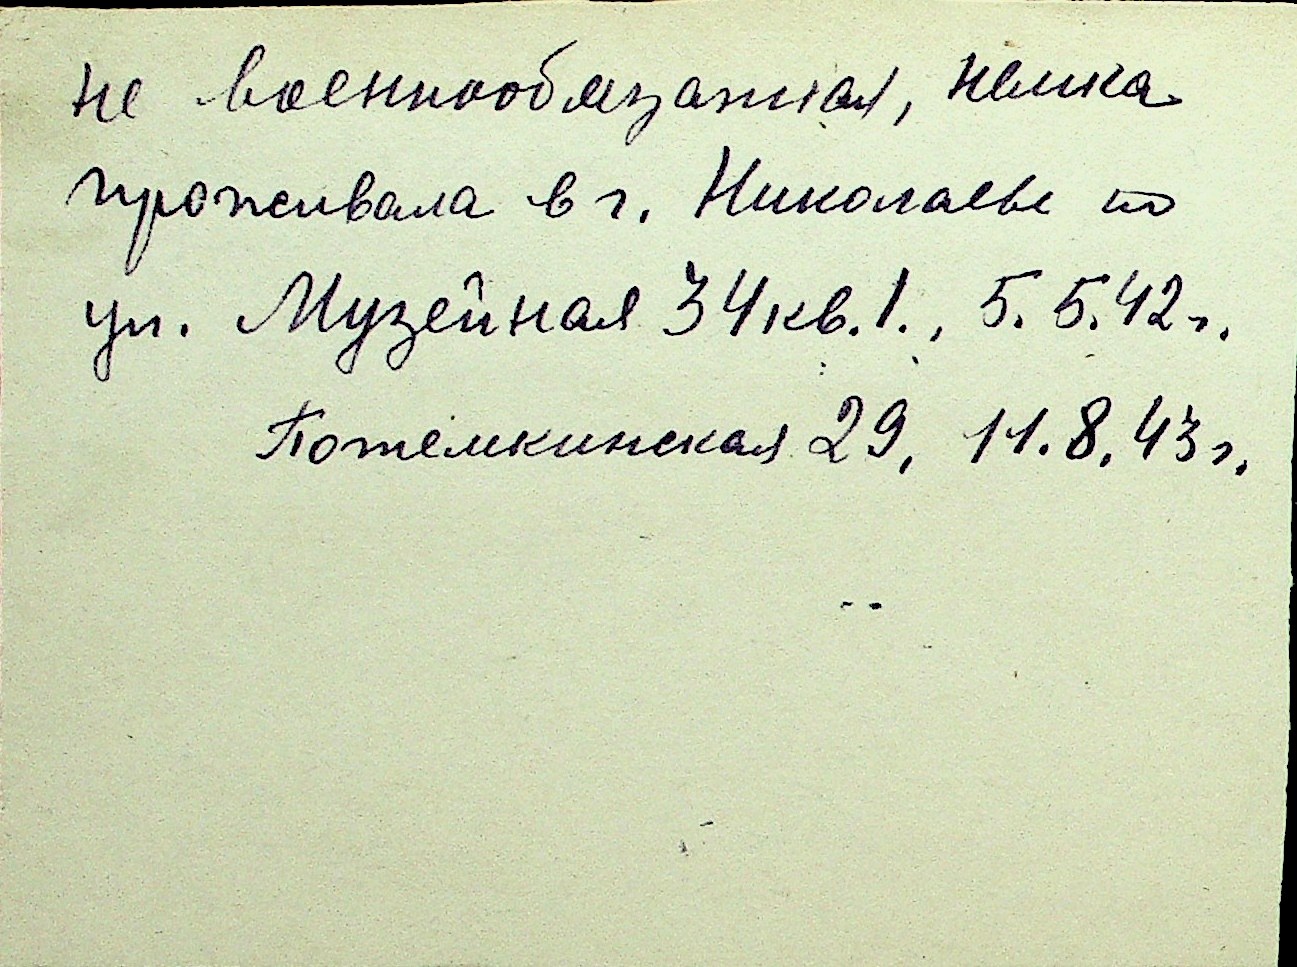 не военнообязаная, немка
проживала в г. Николаеве по
ул. Музейная 34 кв. 1., 5.5.42 г.
Потемкинская 29, 11.8.43 г.